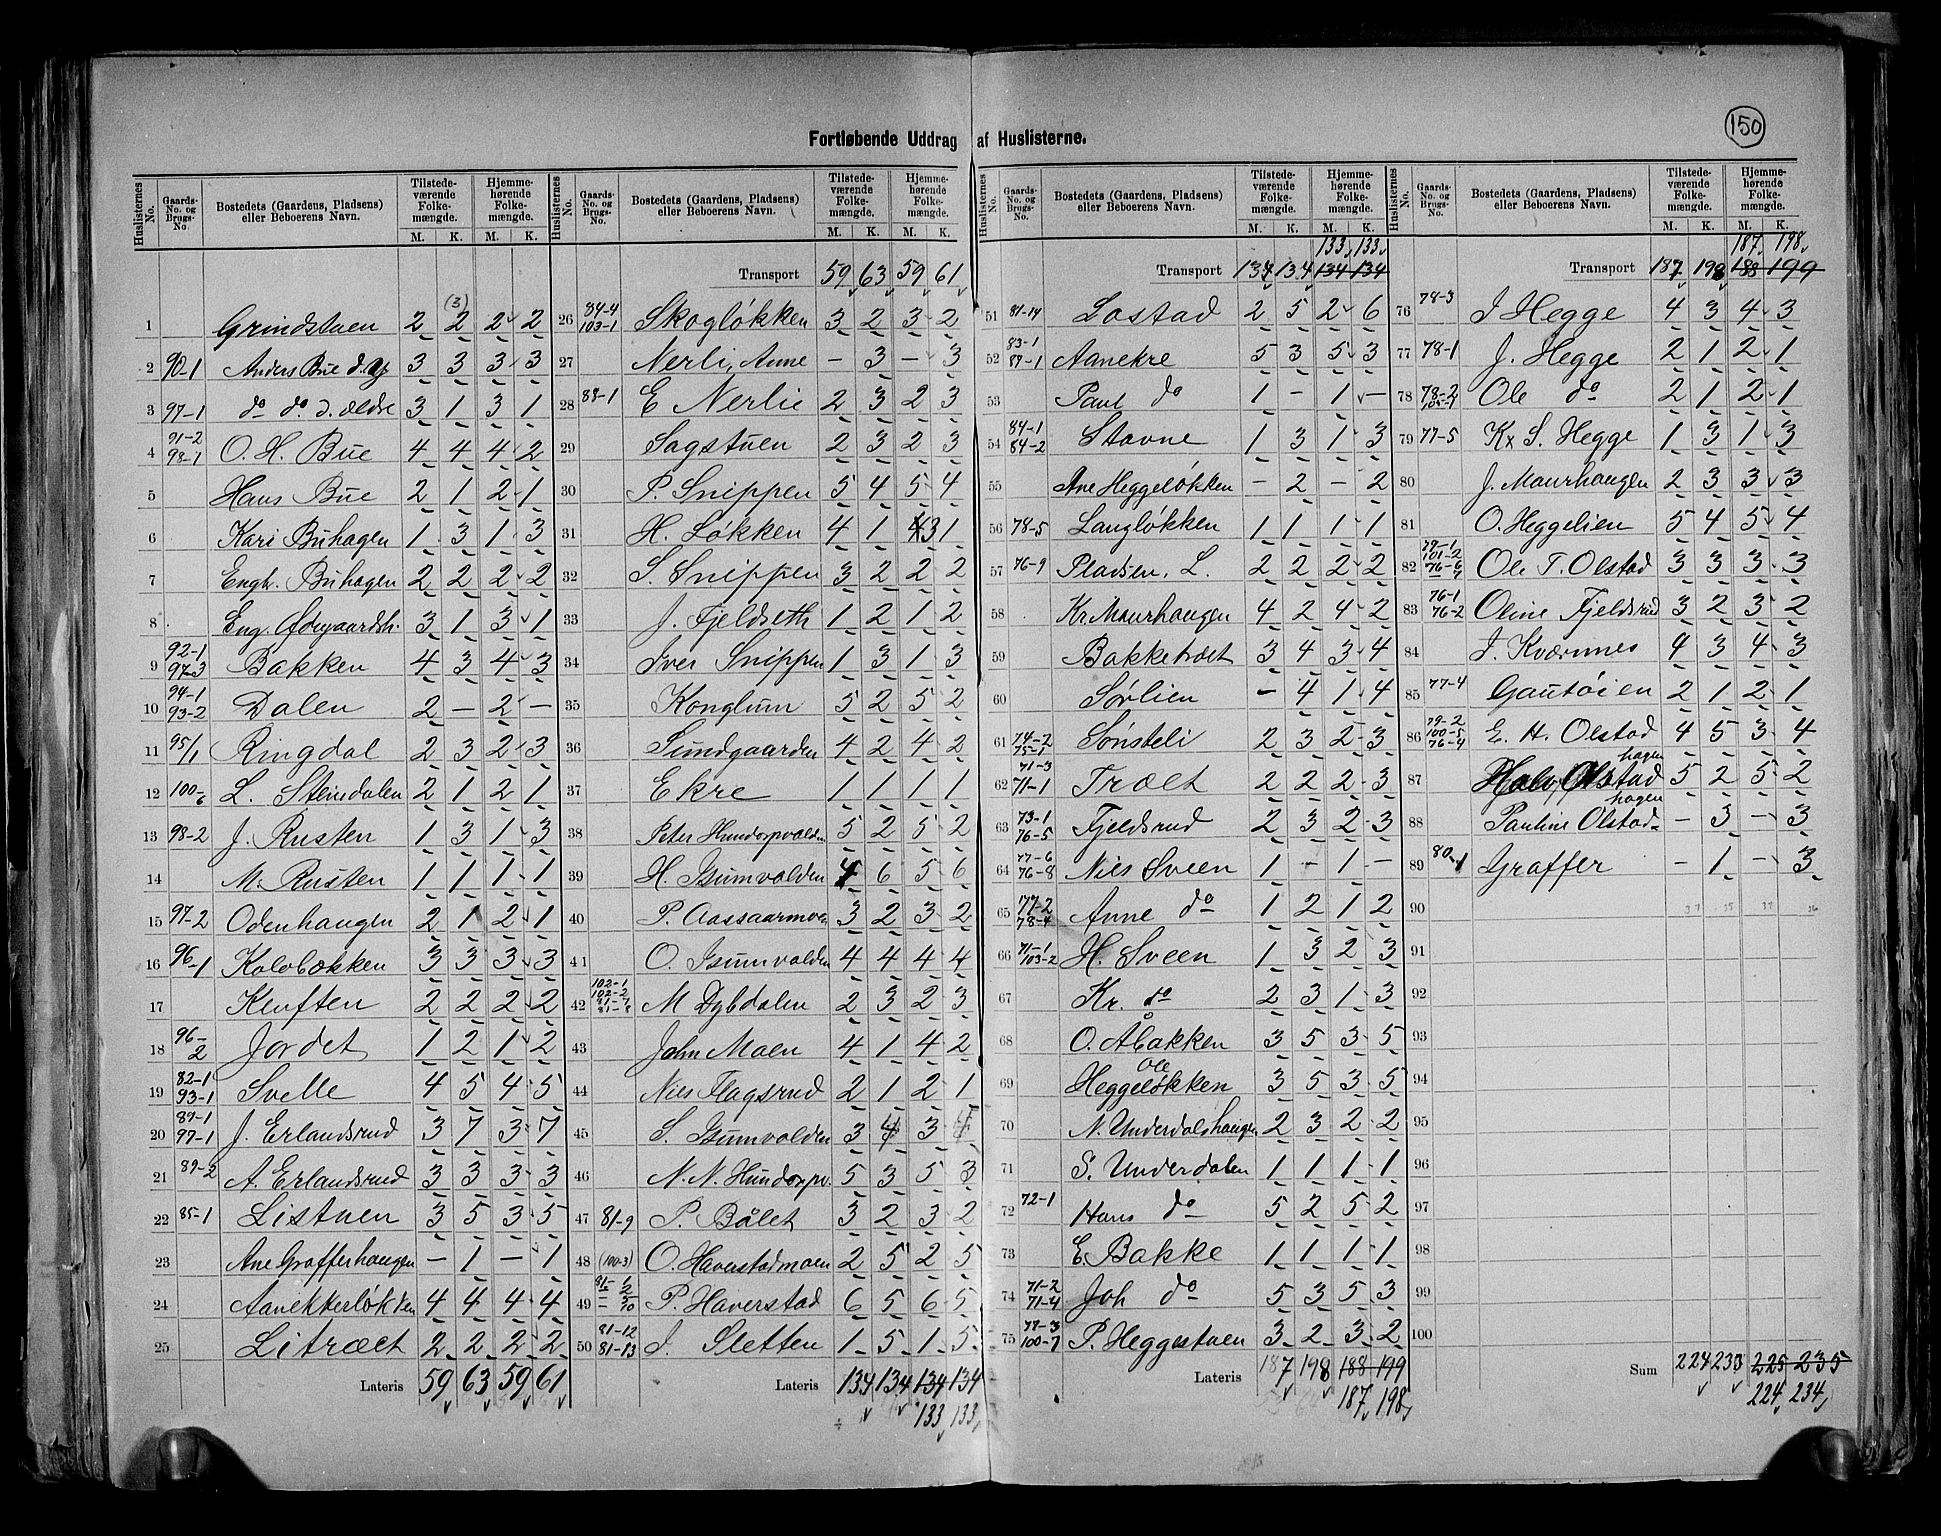 150
Fortløbende Uddrag af Huslisterne.
Huslisternes No. Gaards-No. og Brugs-No. Bostedets (Gaardens, Pladsens) eller Beboerens Navn. Tilstedeværende Folkemængde. M. K. Hjemmehørende Folkemængde. M. K.
(3)
1 Grindstuen 2 2 2 2
2 90-1 Anders Bue d. y 3 3 3 3
3 97-1 do do d. ældre 3 1 3 1
4 91-2 98-1 O. H. Bue 4 4 4 2
5 Hans Bue 2 1 2 1
6 Kari Buhagen 1 3 1 3
7 Engh. Buhagen 2 2 2 2
8 Eng. Ødegaardsh. 3 1 3 1
9 92-1 97-3 Bakken 4 3 4 3
10 94-1 93-2 Dalen 2 — 2 —
11 95/1 Ringdal 2 3 2 3
12 100-6 L. Steinsdalen 2 1 2 1
13 98-2 J. Rusten 1 3 1 3
14 M. Rusten 1 1 1 1
15 97-2 Odenhaugen 2 1 2 1
16 96-1 Kolobækken 3 3 3 3
17 Kluften 2 2 2 2
18 96-2 Jordet 1 2 1 2
19 82-1 93-1 Svelle 4 5 4 5
20 89-1 97-1 J. Erlandsrud 3 7 3 7
21 89-2 A. Erlandsrud 3 3 3 3
22 85-1 Listuen 3 5 3 5
23 Ane Grafferhaugen — 1 — 1
24 Aanekkerløkken 4 4 4 4
25 Litræet 2 2 2 2
Lateris 59 63 59 61
Huslisternes No. Gaards-No. og Brugs-No. Bostedets (Gaardens, Pladsens) eller Beboerens Navn. Tilstedeværende Folkemængde. M. K. Hjemmehørende Folkemængde. M. K.
Transport 59 63 59 61
26 84-4 103-1 Skogløkken 3 2 3 2
27 Nerli, Anne — 3 — 3
28 88-1 E Nerlie 2 3 2 3
29 Sagstuen 2 3 2 3
30 P. Snippen 5 4 5 4
31 H. Løkken 4 1 4 3 1
32 S. Snippen 3 2 2 2
33 J. Fjeldseth 1 2 1 2
34 Iver Snippen 1 3 1 3
35 Konglum 5 2 5 2
36 Sundgaarden 4 2 4 2
37 Ekre 1 1 1 1
38 Peter Hundorpvolden 5 2 5 2
39 H. Isumvolden 4 6 5 6
40 P. 3 2 3 2
41 O. Isumvolden 4 4 4 4
42 102-1 102-2 81-7 81-8 M Dybdalen 2 3 2 3
43 John Moen 4 1 4 2
44 Nils Flagsrud 2 1 2 1
45 S. Isumvolden 3 4 3 4
46 N. N. Hundorpv. 5 3 5 3
47 81-9 P. Bålet 3 2 3 2
48 (100-3) O. Haverstadmoen 2 5 2 5
49 P. Haverstad 6 5 6 5
50 81-12 81-13 J. Sletten 1 5 1 5
Lateris 134 134 134 134
133 133
Huslisternes No. Gaards-No. og Brugs-No. Bostedets (Gaardens, Pladsens) eller Beboerens Navn. Tilstedeværende Folkemængde. M. K. Hjemmehørende Folkemængde. M. K.
133 133
Transport 134 134 134 134
51 81-14 Lostad 2 5 2 6
52 83-1 87-1 Aanekre 5 3 5 3
53 Paul do 1 — 1 —
54 84-1 84-2 Stavne 1 3 1 3
55 Ane Heggeløkken — 2 — 2
56 78-5 Langløkken 1 1 1 1
57 76-9 Pladsen. L. 2 2 2 2
58 Kr. Maurhaugen 4 2 4 2
59 Bakketræet 3 4 3 4
60 Sørlien — 4 1 4
61 74-2 75-1 Sønsteli 2 3 2 3
62 71-3 71-1 Træet 2 2 2 3
63 73-1 76-5 Fjeldsrud 2 3 2 3
64 77-6 76-8 Nils Sveen 1 — 1 —
65 177-2 78-4 Anne do 1 2 1 2
66 71-1 103-2 H. Sveen 1 3 2 3
67 Kr. do 2 3 1 3
68 O. Åbakken 3 5 3 5
69 Ole Heggeløkken 3 5 3 5
70 N. Underdalshaugen 2 3 2 2
71 S. Underdalen 1 1 1 1
72 72-1 Hans do 5 2 5 2
73 E. Bakke 1 1 1 1
74 71-2 71-4 Joh do 5 3 5 3
75 77-3 100-7 P. Heggestuen 3 2 3 2
Lateris 187 198 188 199
187 198
Huslisternes No. Gaards-No. og Brugs-No. Bostedets (Gaardens, Pladsens) eller Beboerens Navn. Tilstedeværende Folkemængde. M. K. Hjemmehørende Folkemængde. M. K.
187 198
Transport 187 198 188 199
76 78-3 I Hegge 4 3 4 3
77 78-1 J. Hegge 2 1 2 1
78 78-2 Ole do 2 1 2 1
79 77-5 Kx S. Hegge 1 3 1 3
80 J. Maurhaugen 2 3 3 3
81 O. Heggelien 5 4 5 4
82 79-1 101-2 76-6 — 7 Ole T. Olstad 3 3 3 3
83 76-1 76-2 Oline Fjeldsrud 3 2 3 2
84 I. Kværnnes 4 3 4 3
85 77-4 Gautøien 2 1 2 1
86 79-2 100-5 76-4 E. H. Olstad 4 5 3 4
87 Halv. Olstadhagen 5 2 5 2
88 Pauline Olstadhagen — 3 — 3
89 80-1 Graffer — 1 — 3
90 37 35 37 36
91
92
93
94
95
96
97
98
99
100
Sum 224 233 225 235
224 234